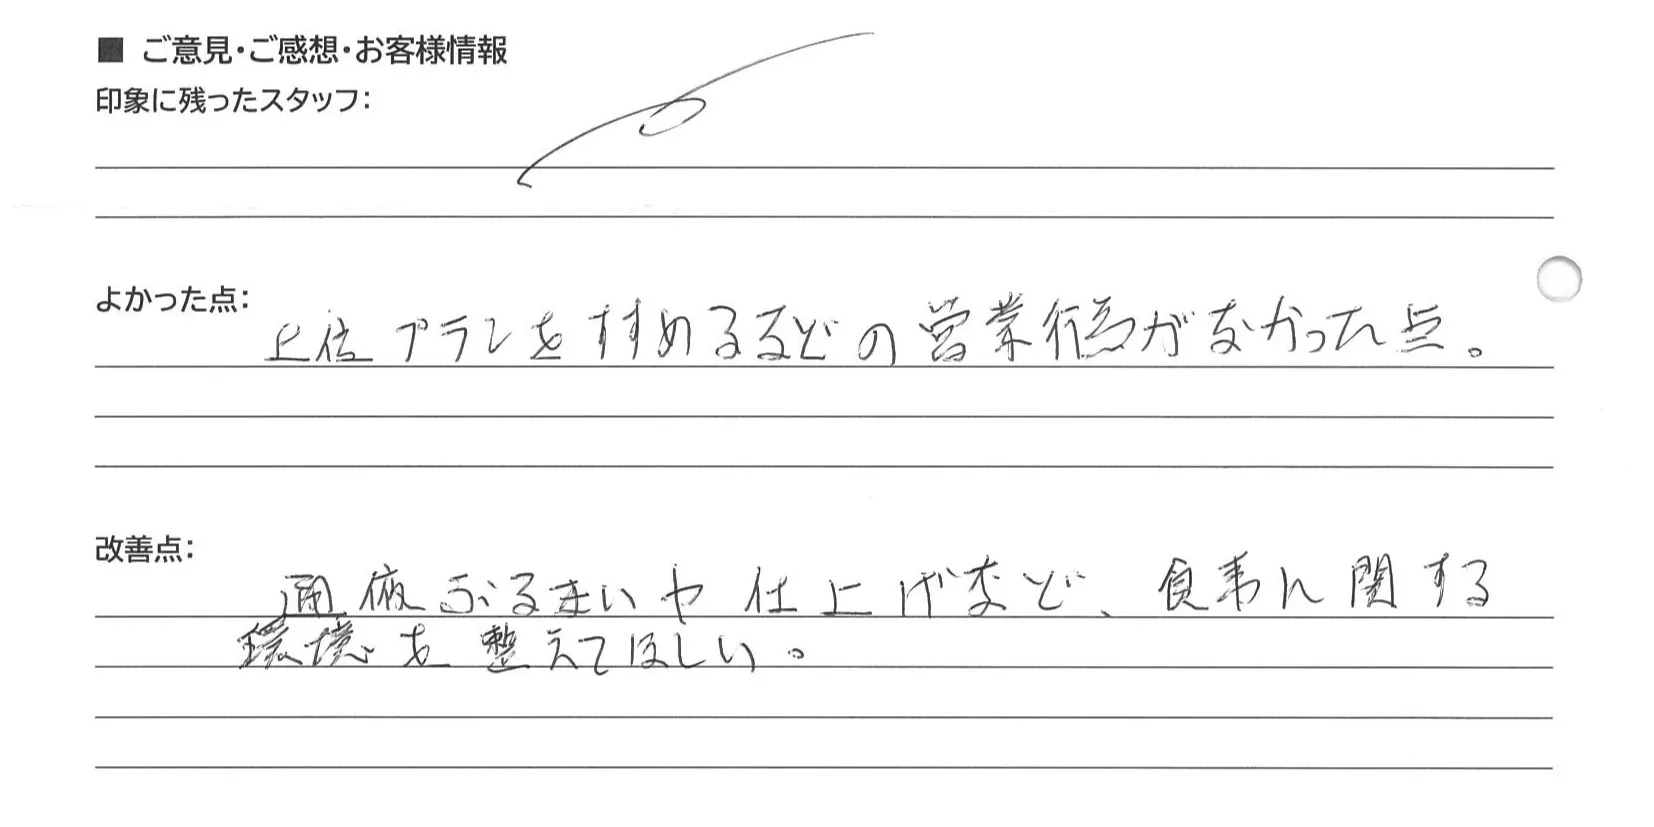 ■ ご意見・ご感想・お客様情報
印象に残ったスタッフ：
よかった点：
上位プランをすすめるなどの営業行為がなかった点。
改善点：
立ちふるまいや仕上げなど、食事に関する
環境を整えてほしい。